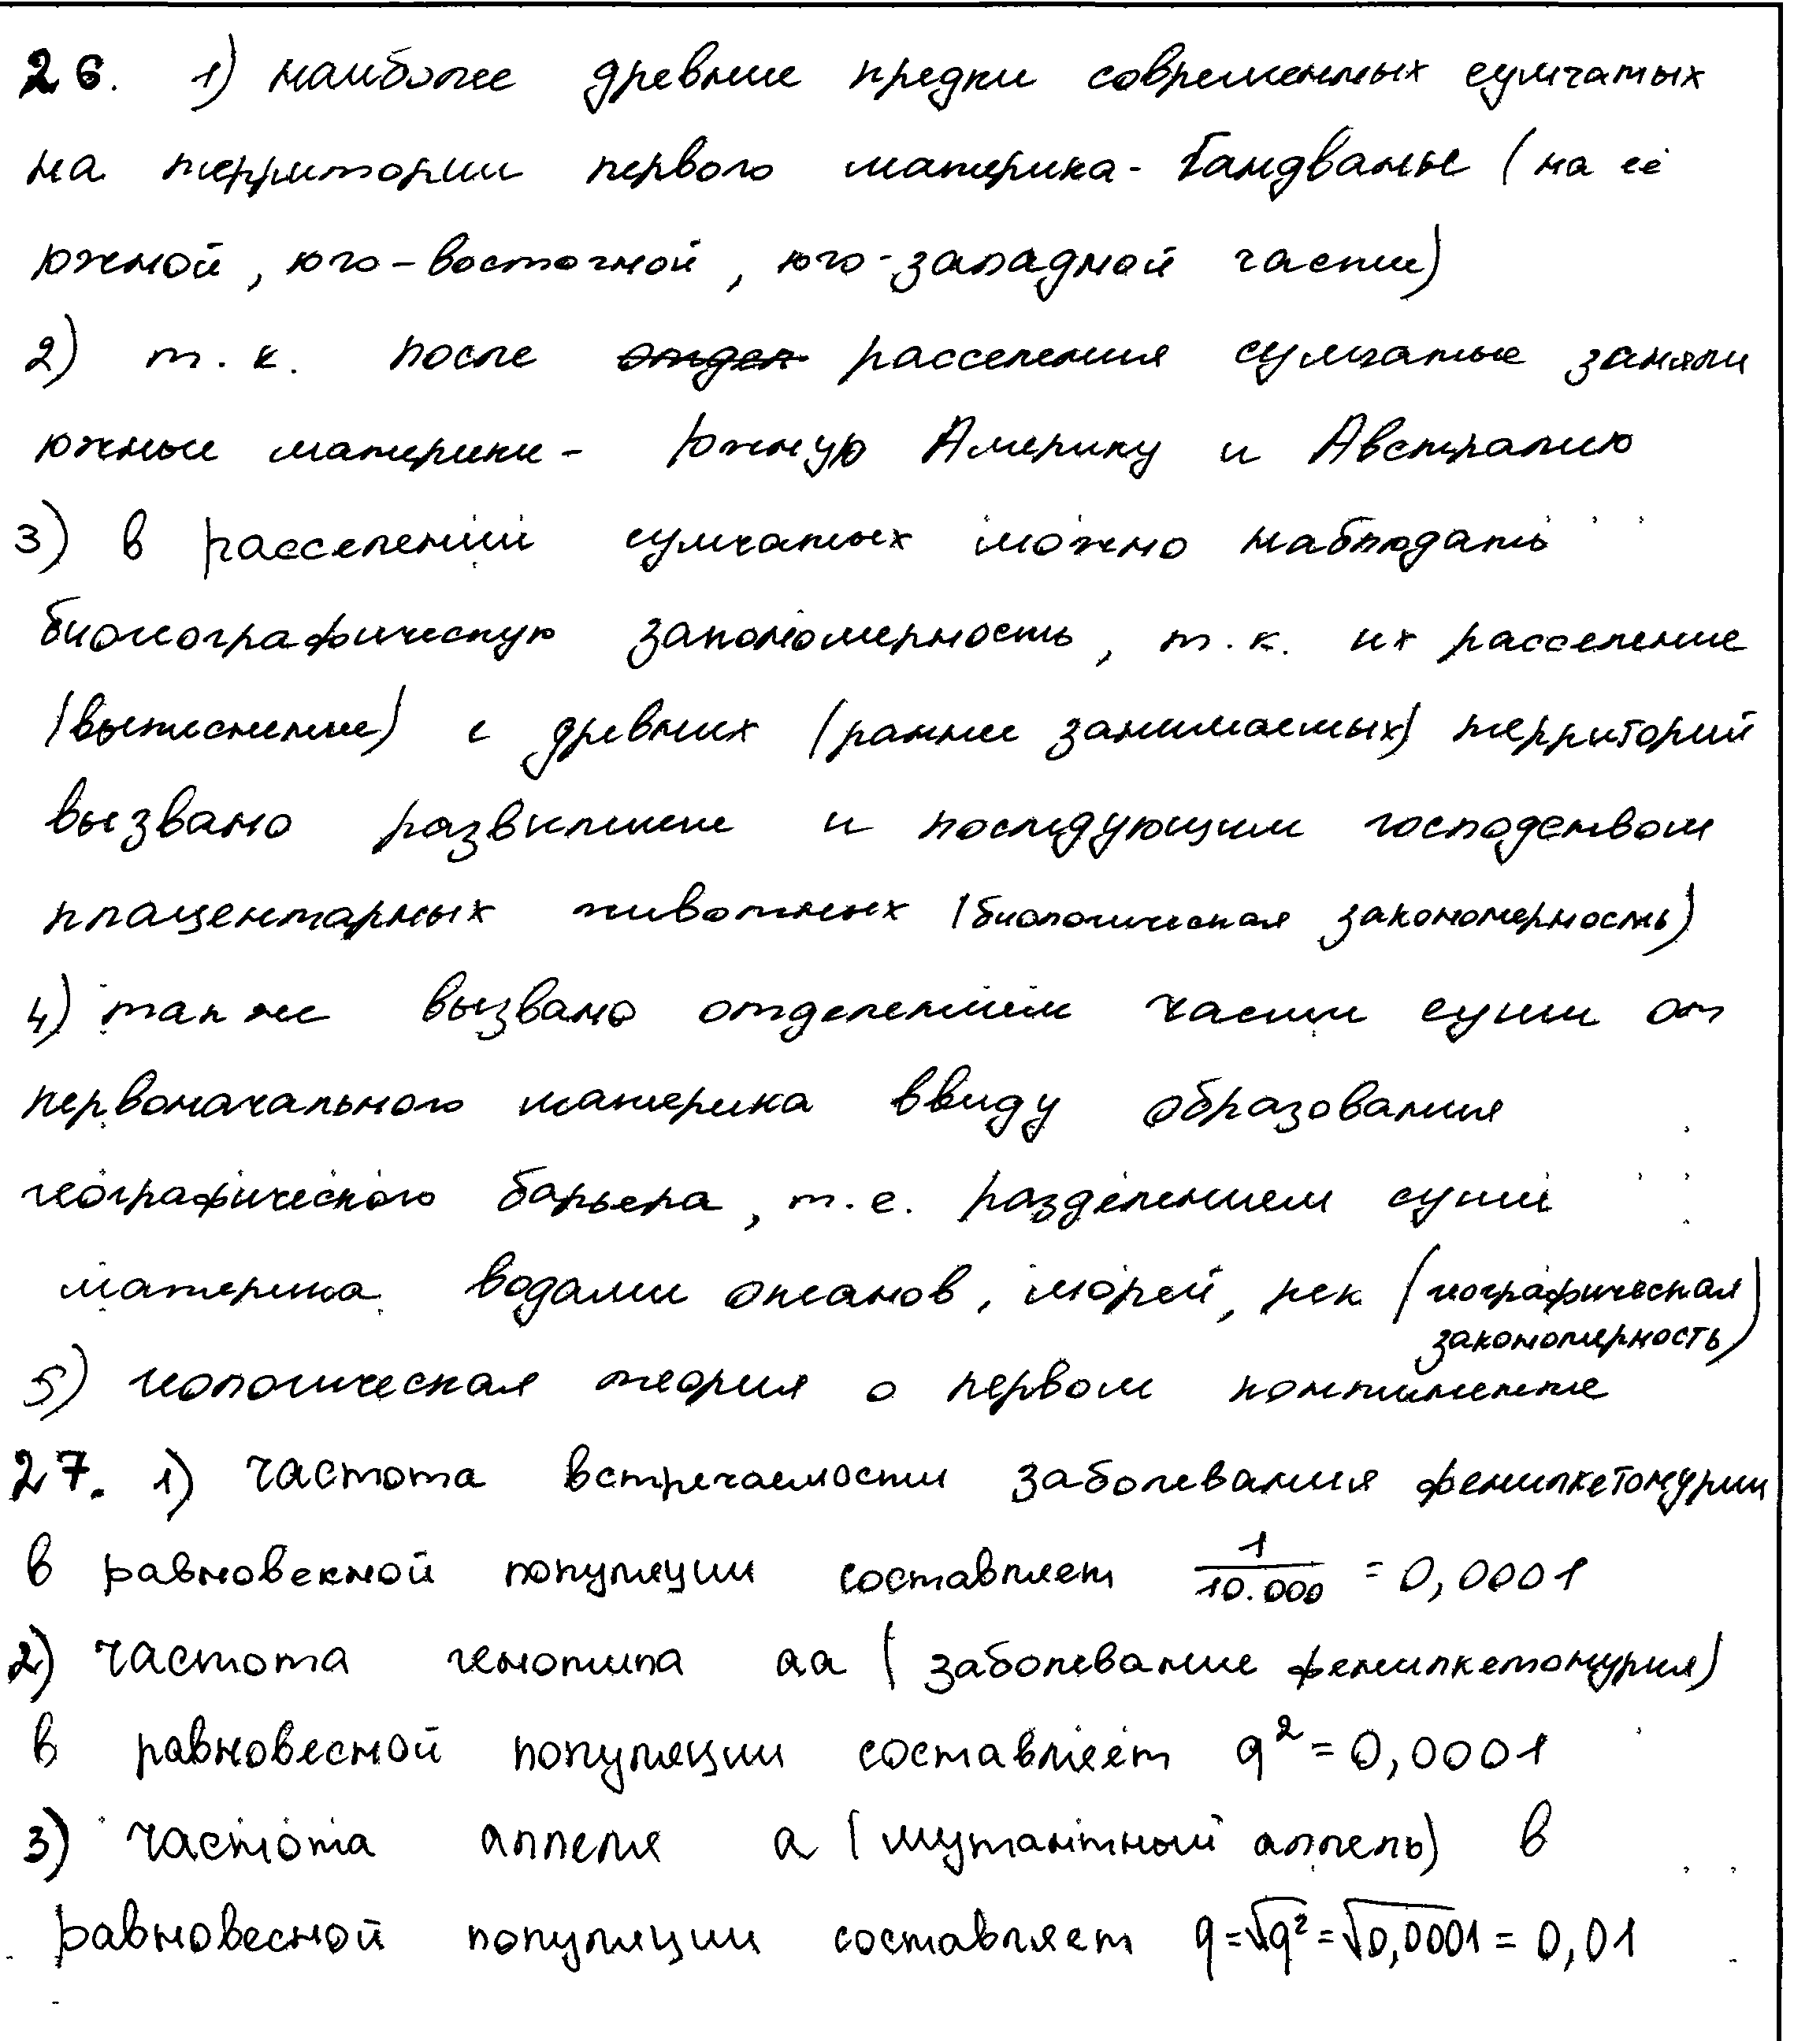 26. 1) наиболее древние предки современных сумчатых
на территории первого материка - Гандваны (на её
южной, юго-восточной, юго-западной части)
2) т.к. после отдел расселения сумчатые заняли
южные материки - Южную Америку и Австралию
3) в расселении сумчатых можно наблюдать
биогеографическую закономерность, т.к. их расселение
(вытеснение) с древних (ранее занимаемых) территорий
вызвано развитием и последующим господством
плацентарных животных (биологическая закономерность)
4) также вызвано отделением части суши от
первоначального материка ввиду образования
географического барьера, т.е. разделением суши
материка водами океанов, морей, рек (географическая
закономерность)
5) геологическая теория о первом континенте
27. 1) частота встречаемости заболевания фенилкетонурии
в равновекной популяции составляет 1/10.000 = 0,0001
2) частота генотипа аа (заболевание фенилкетонурия)
в равновесной популяции составляет q² = 0,0001
3) частота аллеля а (мутантный аллель) в
равновесной популяции составляет q = √q² = √0,0001 = 0,01